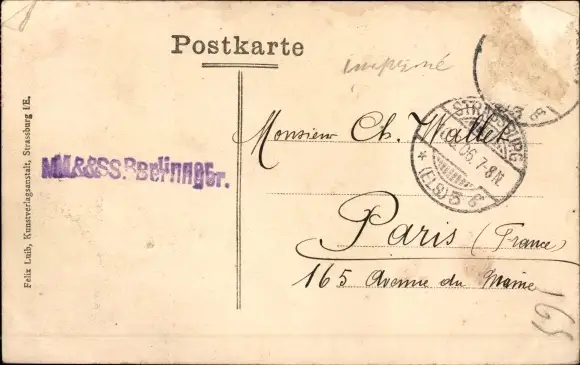 Postkarte
imprimé
Monsieur Ch. Wallet
Paris (France)
165 Avenue du Maine
165
STRASSBURG
06. 7-8N.
* (ELS) 3 *
Felix Luib, Kunstverlagsanstalt, Strassburg i E.